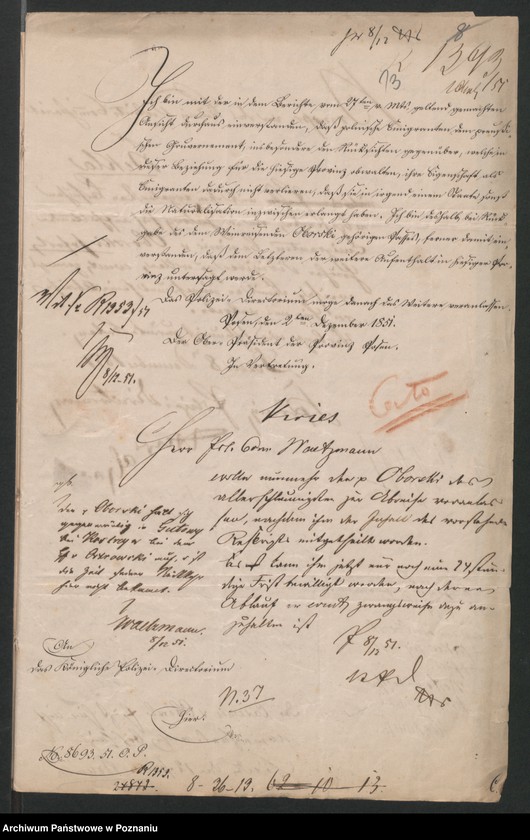 pr 8/12
1393
Ich bin mit der in dem Berichte vom 27ten v. Mts geltend gemachten
Ansicht durchaus einverstanden, daß polnische Emigranten, dem preußi-
schen Gouvernement, insbesondere den Rücksichten gegenüber, welche in
dieser Beziehung für die hiesige Provinz obwalten, ihre Eigenschaft als
Emigranten dadurch nicht verlieren, daß sie in irgend einem Staate sonst
die Naturalisation inzwischen erlangt haben. Ich bin deshalb bei Rück-
gabe des dem Weinreisenden Oborski gehörigen Passes, ferner damit ein-
verstanden, daß dem Letzteren der weitere Aufenthalt in hiesiger Pro-
vinz untersagt werde.
Das Polizei-Directorium möge danach das Weitere veranlassen.
Posen, den 2ten Dezember 1851.
Der Ober-Präsident der Provinz Posen.
In Vertretung.
R1953/51
8/12 51.
Cito
Herr Pol. Com Wachmann
wolle nunmehr den p Oborski des
allerschleunigsten zur Abreise veranlas-
sen, nachdem ihm der Inhalt des vorstehenden
Rescripts mitgetheilt worden.
Es kann ihm jetzt nur noch eine 24 stün-
dige Frist bewilligt werden, nach deren
Ablauf er zwangsweise dazu an-
zuhalten ist
P 8/12 51.
Der p Oborski hält sich
gegenwärtig in
bei Kostrzyn bei dem
Ostrowski auf, es ist
die Zeit seiner Rückkehr
hier nicht bekannt.
Wachmann.
8/12 51.
An
das Königliche Polizei-Directorium
Hier.
N. 37
No. 5693. 51. O. P.
R1953.
8 - 26 - 13. 62 - 10 - 13.
Archiwum Państwowe w Poznaniu